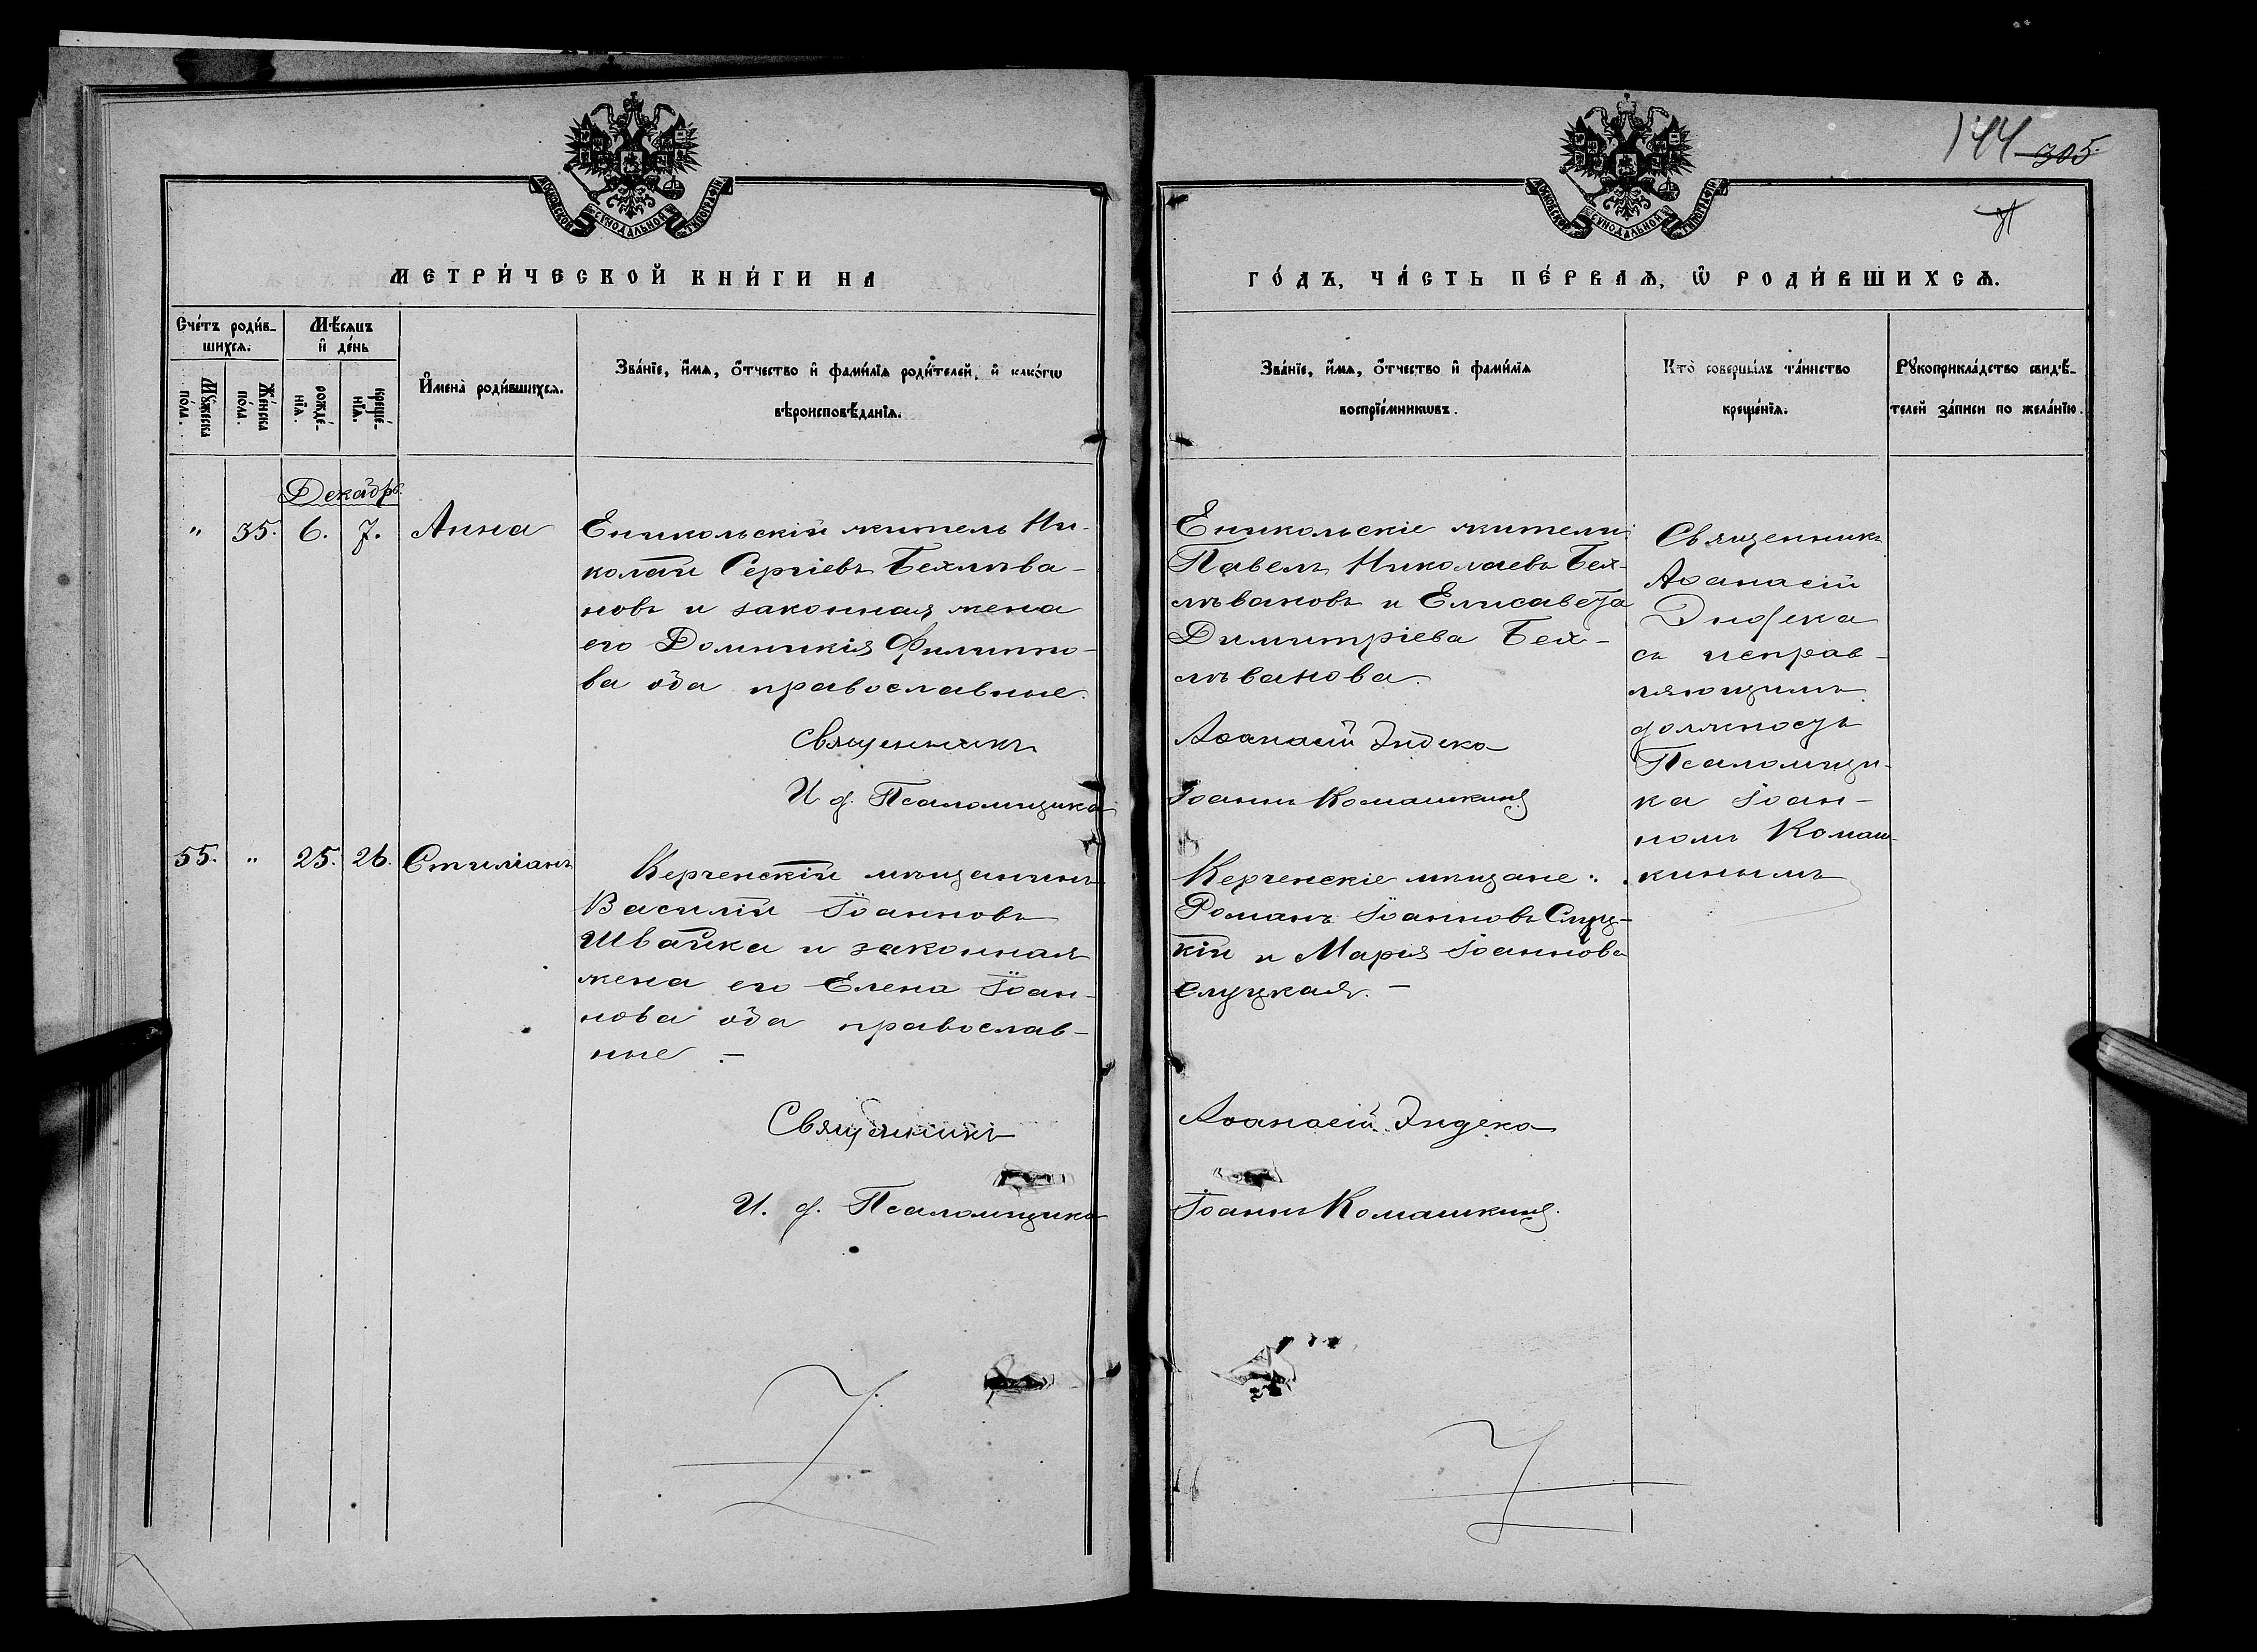 144 305.
МОСКОВСКОЙ СѴНОДАЛЬНОЙ ТИПОГРАФІИ
МОСКОВСКОЙ СѴНОДАЛЬНОЙ ТИПОГРАФІИ
МЕТРИ́ЧЕСКОЙ КНИ́ГИ НА
ГО́ДЪ, ЧА́СТЬ ПЕ́РВАѦ, Ѿ РОДИ́ВШИХСѦ.
Сче́тъ роди́в-
шихсѧ.
Мꙋ́жеска
по́ла.
Же́нска
по́ла.
Мѣ́сѧцъ
и҆ де́нь
рожде́-
нїѧ.
креще́-
нїѧ.
И҆мена̀ роди́вшихсѧ.
Зва́нїе, и҆́мѧ, ѻ҆́тчество и҆ фами́лїѧ роди́телей, и҆ како́гѡ
вѣроисповѣ́данїѧ.
Зва́нїе, и҆́мѧ, ѻ҆́тчество и҆ фами́лїѧ
воспрїе́мникѡвъ.
Кто̀ соверши́лъ та́инство
креще́нїѧ.
Рꙋкоприкла́дство свидѣ́-
телей за́писи по жела́нїю.
Декабрь.
" 35. 6. 7. Анна
Еникольскій житель Ни-
колай Сергіевъ Бехлѣва-
новъ и законная жена
его Домникія Филиппо-
ва оба православные.
Священникъ
И. д. Псаломщика
Еникольскіе жители:
Павелъ Николаевъ Бех-
лѣвановъ и Елисавета
Димитріева Бех-
лѣванова.
Аѳанасій Індеко
Іоаннъ Комашкинъ
Священникъ
Аѳанасій
Индека
съ исправ-
ляющимъ
должность
Псаломщи-
ка Іоан-
номъ Комаш-
кинымъ
55. " 25. 26. Стиліанъ
Керченскій мѣщанинъ
Василій Іоанновъ
Швайка и законная
жена его Елена Іоан-
нова оба православ-
ные. —
Священникъ
И. д. Псаломщика
Керченскіе мѣщане:
Романъ Іоанновъ Слуц-
кій и Марія Іоаннова
Слуцкая. —
Аѳанасій Індеко
Іоаннъ Комашкинъ.